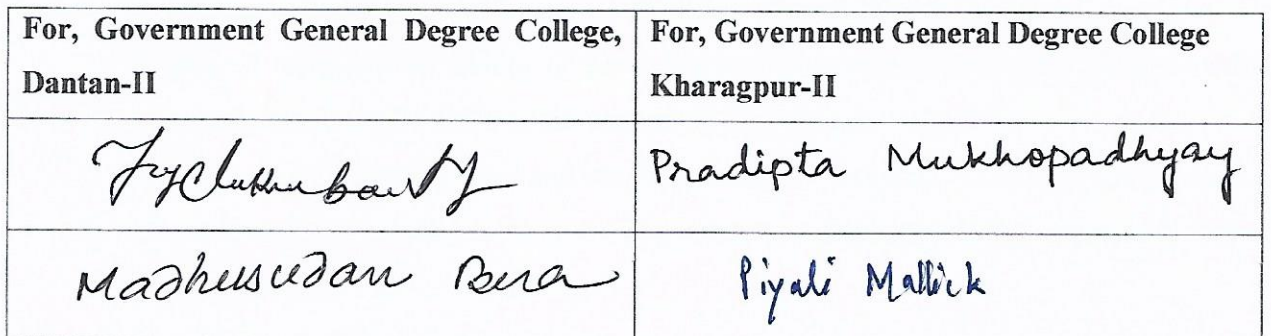 For, Government General Degree College,
Dantan-II
For, Government General Degree College
Kharagpur-II
Pradipta Mukhopadhyay
Madhusudan Bera
Piyali Mallick